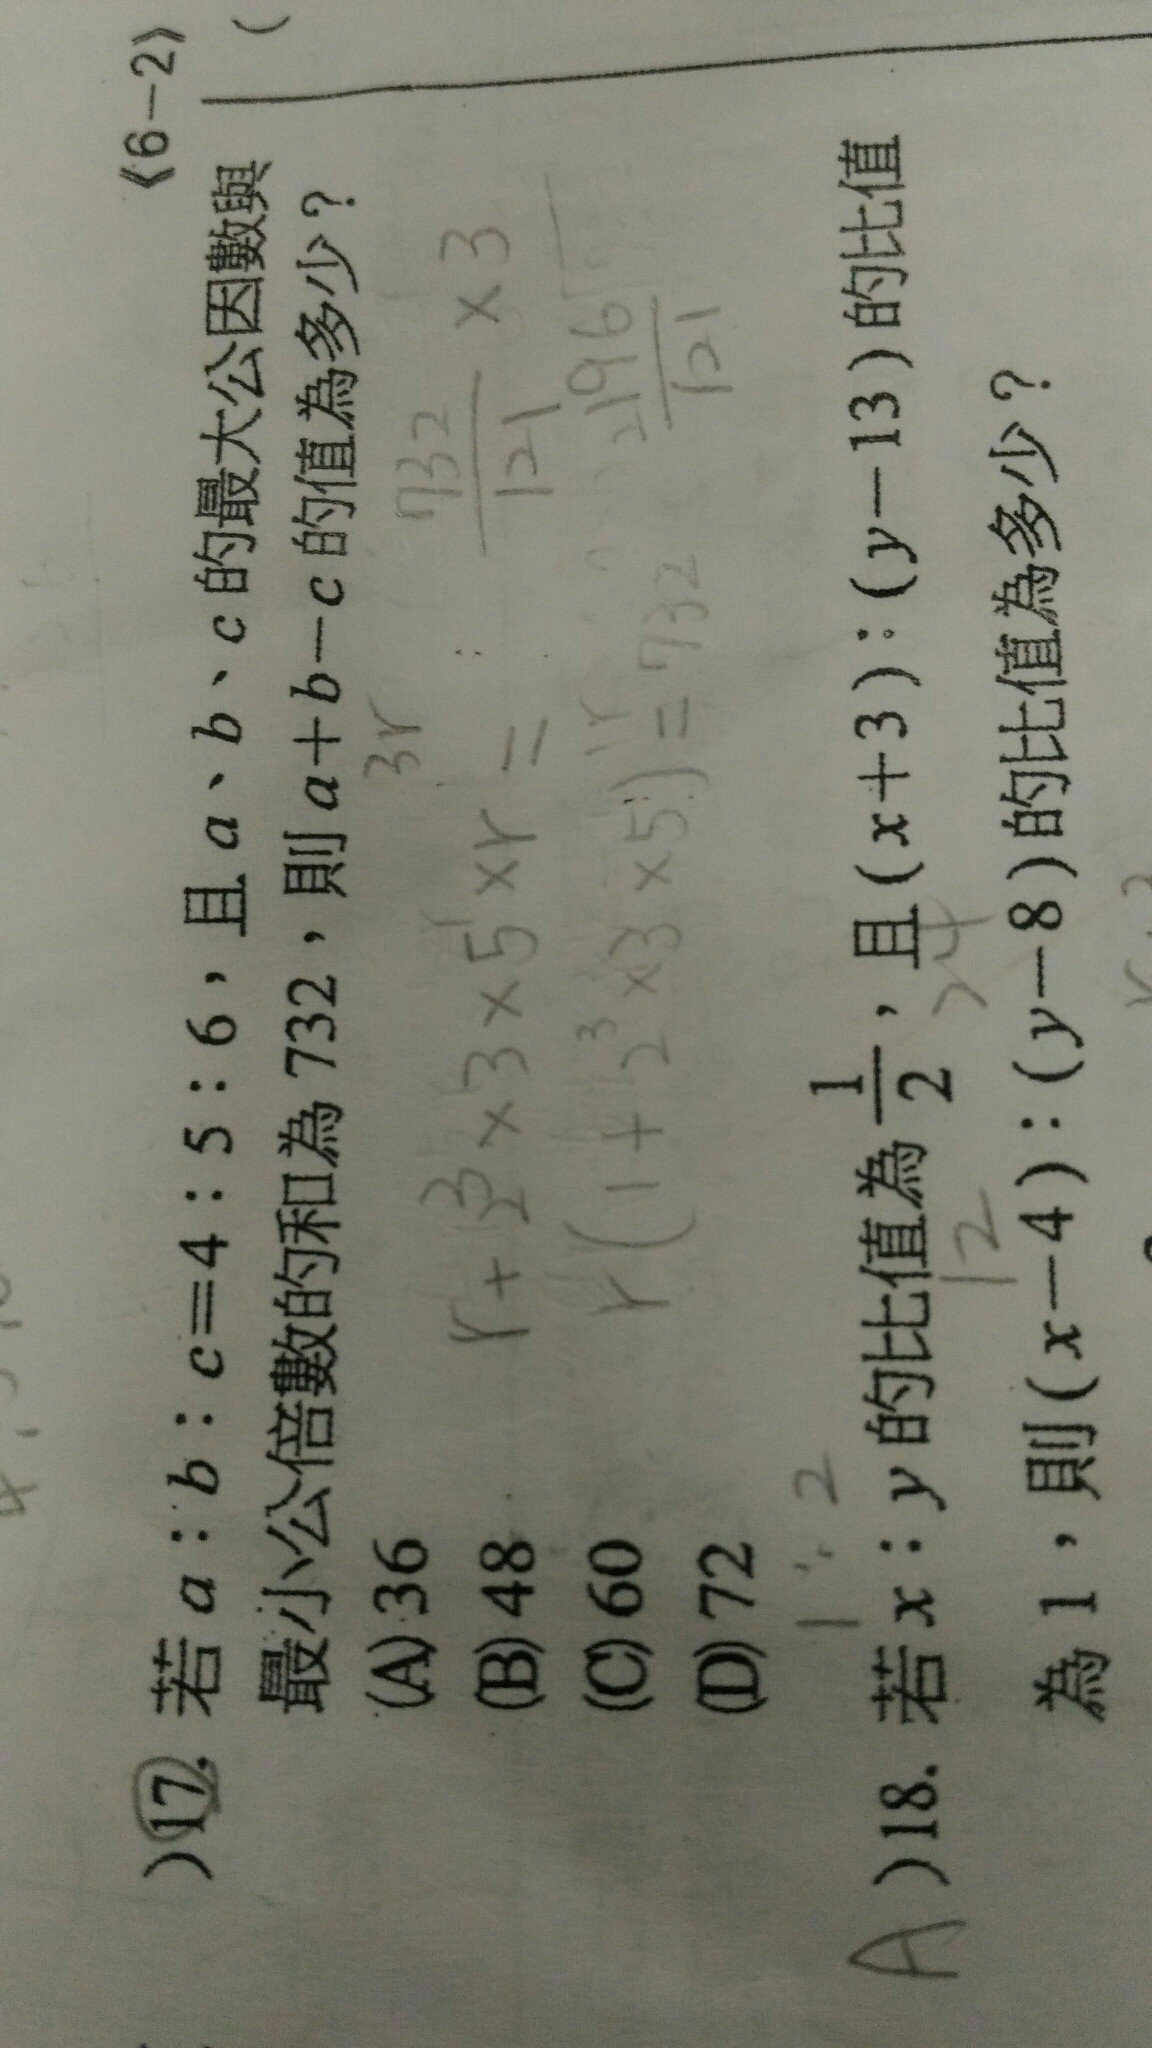 《6－2》
)17. 若 a：b：c＝4：5：6，且 a、b、c 的最大公因數與
最小公倍數的和為 732，則 a＋b－c 的值為多少？
(A) 36
(B) 48
(C) 60
(D) 72
3r
r + 2³ × 3 × 5 × r =
732/121 × 3
r(1 + 2³ × 3 × 5) = 732
2196/121
1 : 2
A )18. 若 x：y 的比值為 1/2，且 (x＋3)：(y－13) 的比值
12
24
為 1，則 (x－4)：(y－8) 的比值為多少？